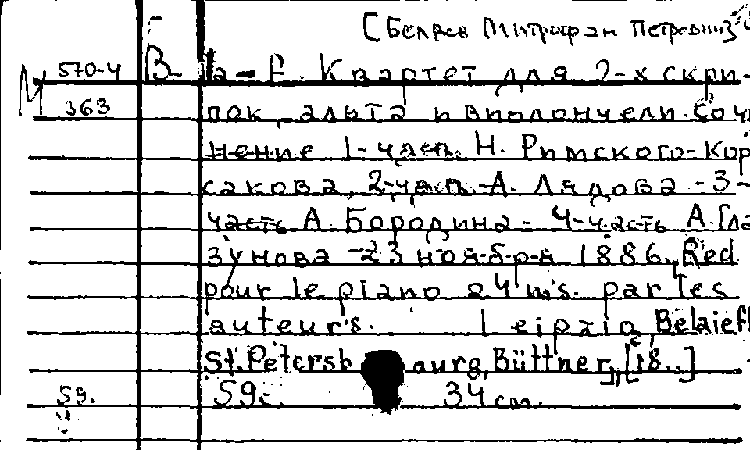 [Беляев Митрофан Петрович]
570-4 Б
В-la-F. Квартет для 2-х скри-
М 363 пок, альта и виолончели. Сочи
нение 1-часть Н. Римского-Кор
сакова, 2-часть А. Лядова - 3-
часть А. Бородина - 4-часть А. Гла
зунова - 23 ноября 1886. Red.
pour le piano a 4 m's. par les
auteur's. Leipzig, Belaieff
St. Petersbourg, Büttner, [18..]
59 с. 34 cm.
59.